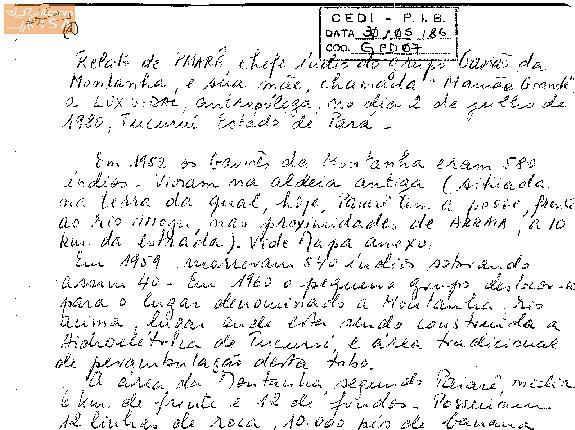 CEDI - P.I.B.
DATA 30/05/86
COD. GPD07
Relato de PAIARÉ, chefe índio do grupo Gavião da
Montanha, e sua mãe, chamada "Mamão Grande"
a LUX VIDAL, antropóloga, no dia 2 de julho de
1980, Tucuruí Estado de Pará -
Em 1952 os Gaviões da Montanha eram 580
índios - Viviam na aldeia antiga (situada
na terra da qual, hoje, Paiaré tem a posse, frente
ao rio Moju, nas proximidades de a 10
km da estrada). Vide Mapa anexo.
Em 1959, morreram 540 índios sobrando
assim 40 - Em 1960 o pequeno grupo deslocou-se
para o lugar denominado a Montanha, rio
acima, lugar onde está sendo construída a
Hidroelétrica de Tucuruí, e área tradicional
de perambulação desta tribo.
A área da Montanha, segundo Paiaré, media
6 km. de frente e 12 de fundos - Possuíam
12 linhas de roça, 10.000 pés de banana